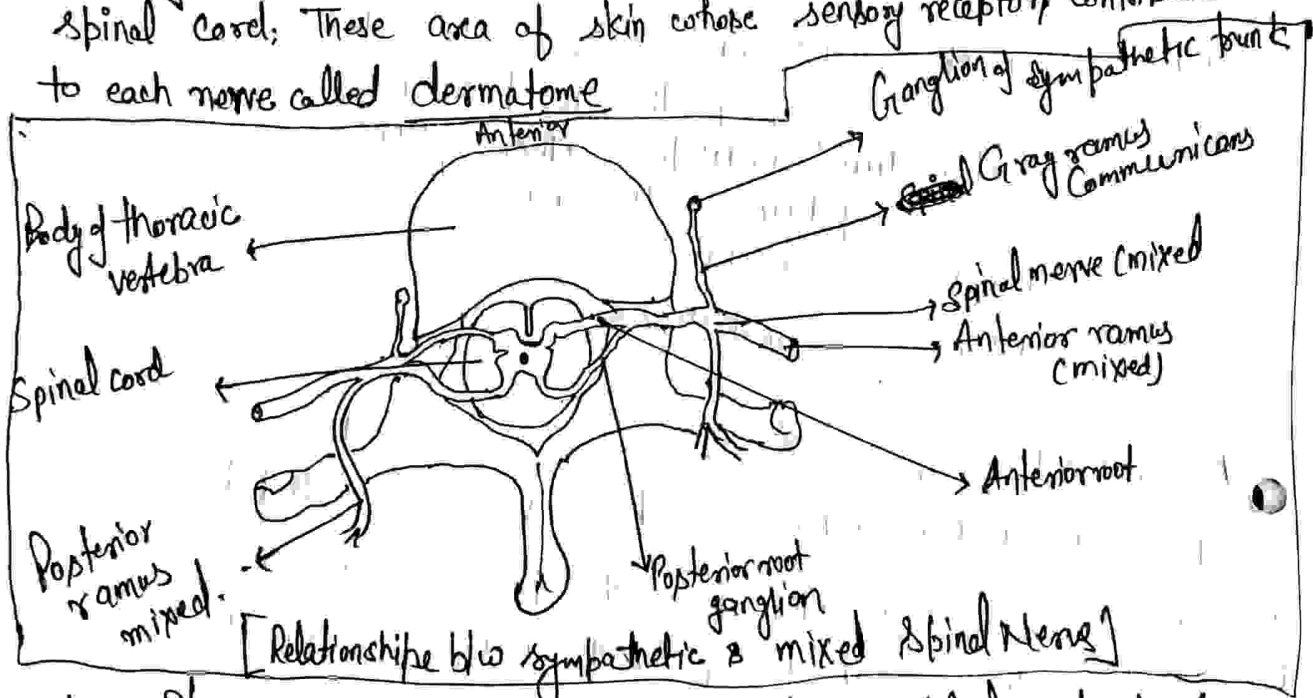 spinal cord; These area of skin whose sensory receptors
to each nerve called dermatome
Anterior
Ganglion of sympathetic trunk
Gray ramus
Communicans
Body of thoracic
vertebra
Spinal nerve (mixed
Anterior ramus
(mixed)
Spinal cord
Anterior root
Posterior
ramus
mixed.
Posterior root
ganglion
[Relationshipe b/w sympathetic & mixed Spinal Nerve]